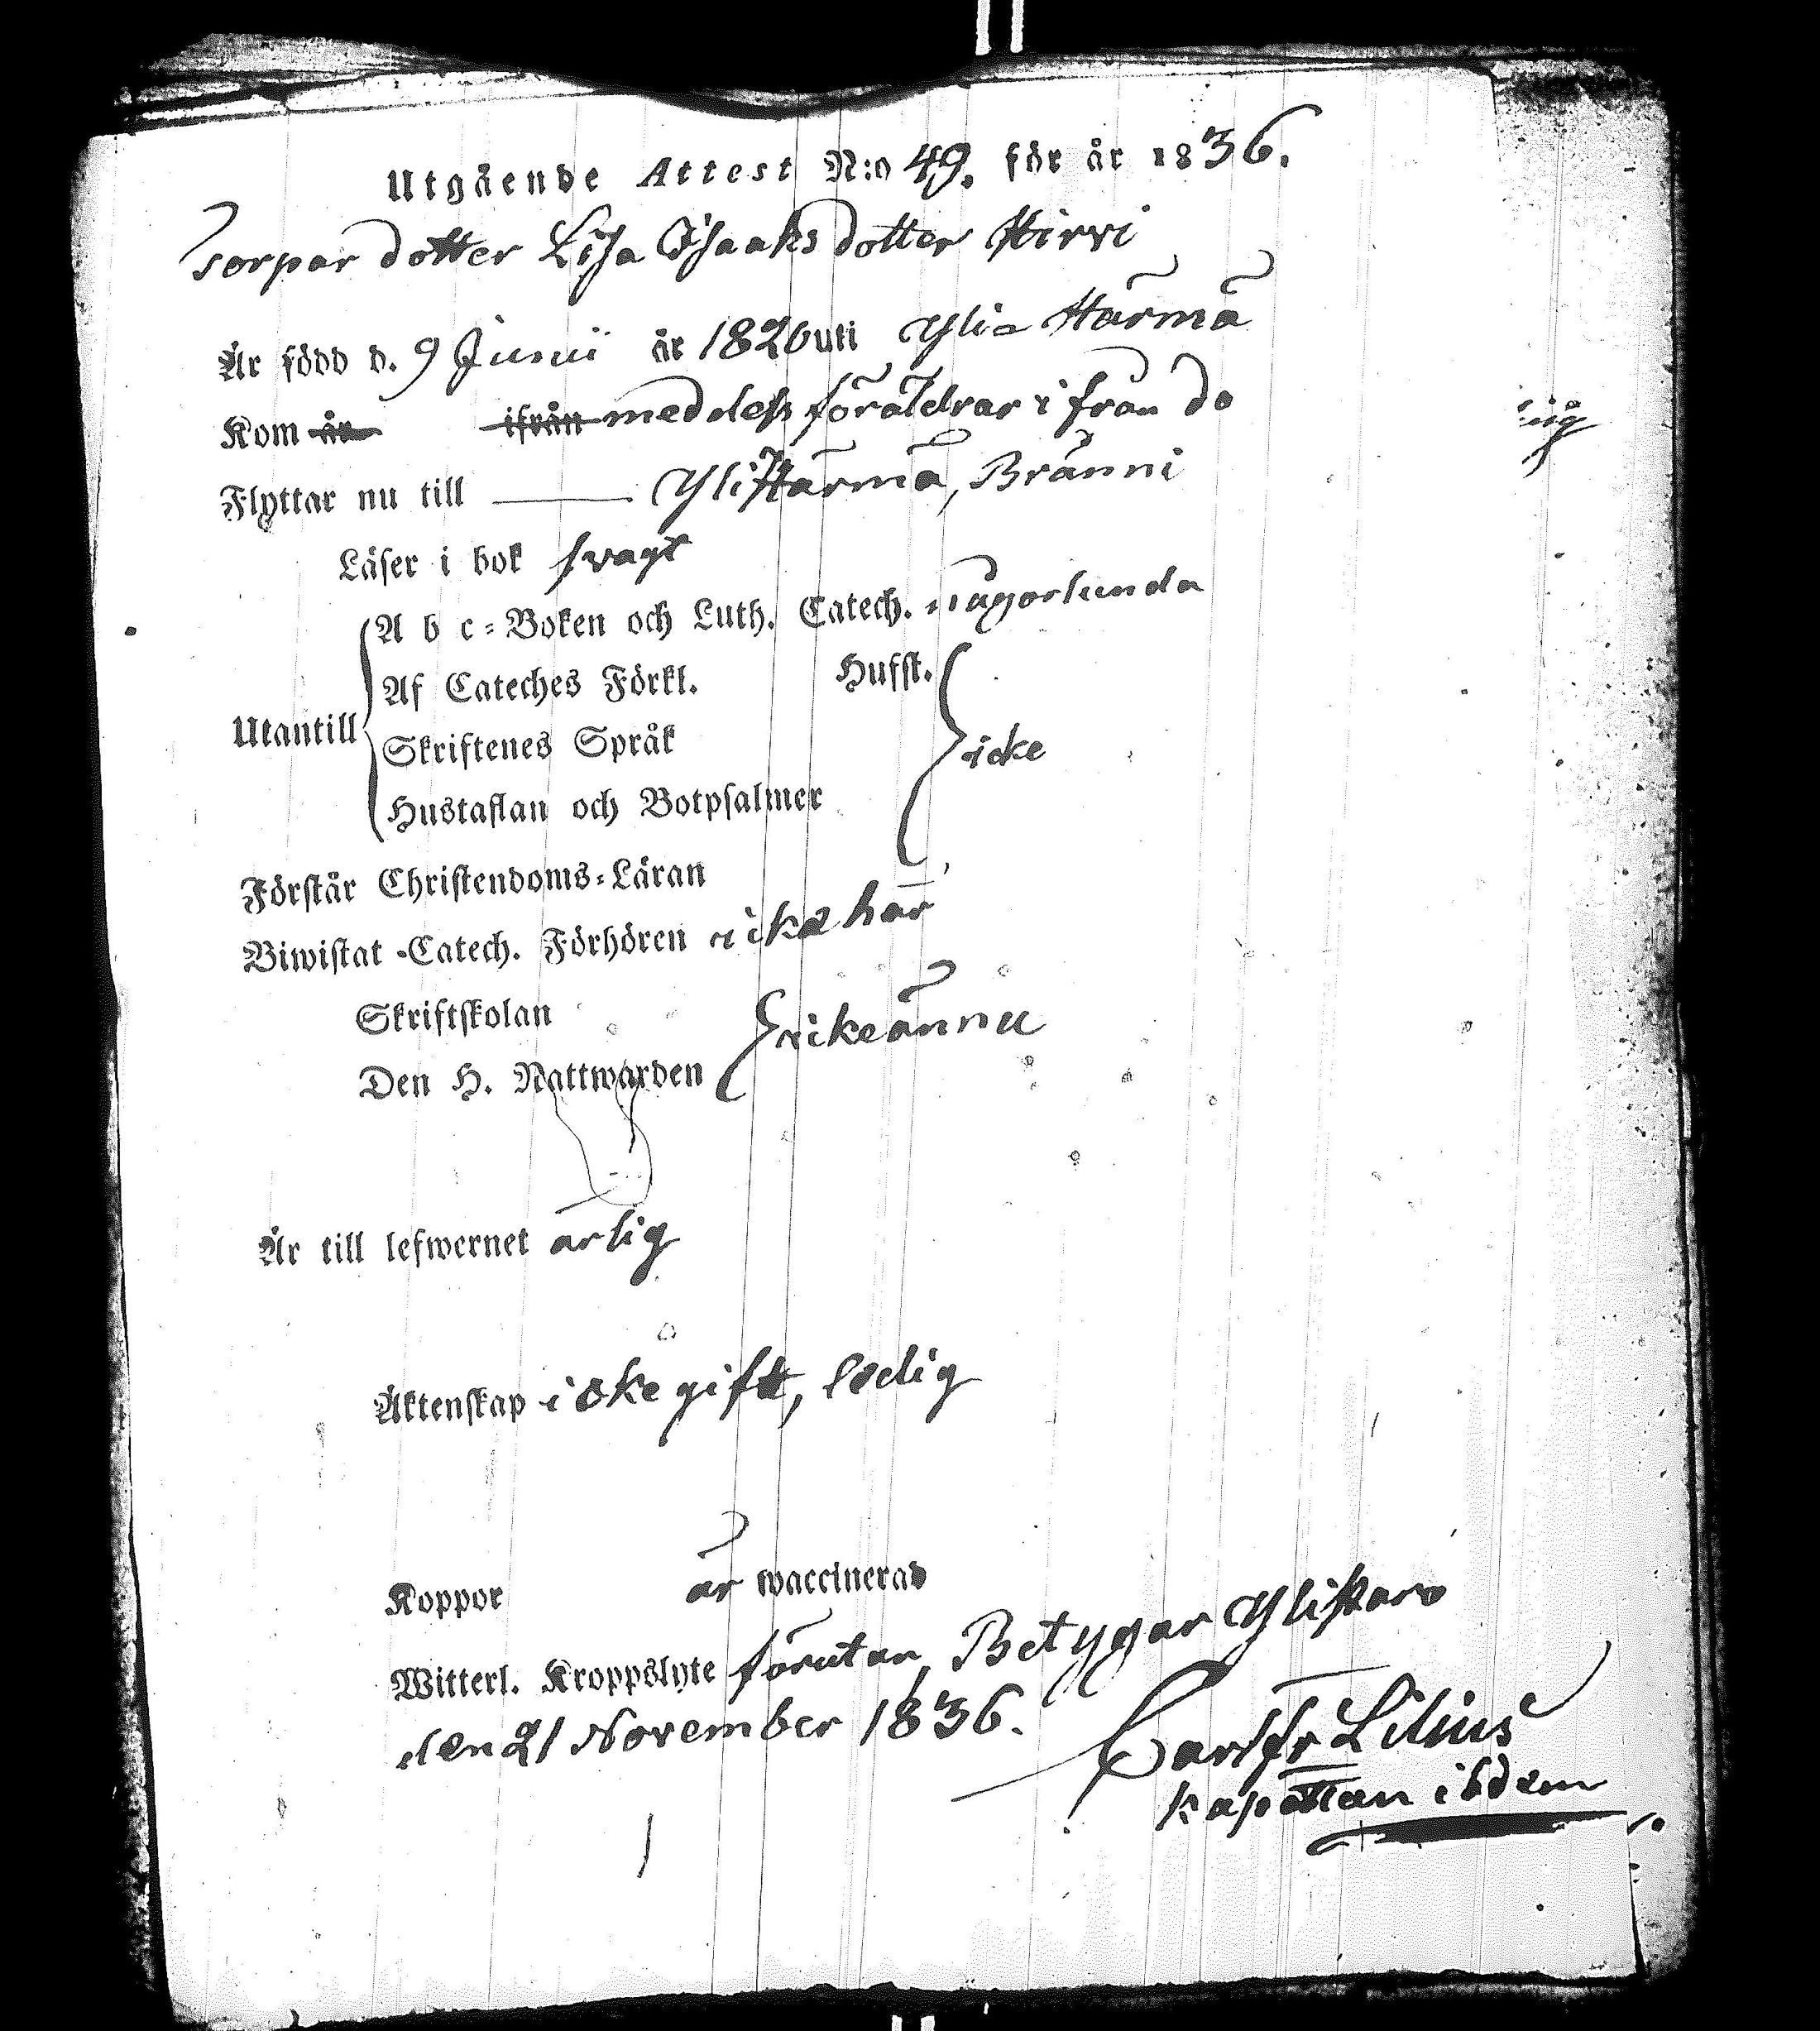 Utgående Attest N:o 49. för år 1836.
Torpar dotter Lisa Isaaks dotter Hirvi
Är född d. 9 Junii år 1826 uti Yli Härmä
Kom år ifrån med dess föräldrar ifrån do
Flyttar nu till Yli Härmä, Bränni
Läser i bok svagt
A b c-Boken och Luth. Catech. någorlunda
Af Cateches Förkl. Hufst.
Utantill
Skriftenes Språk
icke
Hustaflan och Botpsalmer
Förstår Christendoms-Läran
Biwistat Catech. Förhören icke här
Skriftskolan
icke ännu
Den H. Nattwarden
Är till lefwernet ärlig
Äktenskap icke gift, ledig
Koppor är waccinerad
Witterl. Kroppslyte förutan, Betygar Ylistaro
den 21 November 1836.
Carl Fr Lilius
Kapellan ibdem